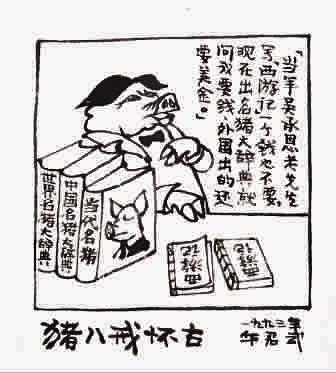 「当年吴承恩老先生
写《西游记》一个钱也不要,
现在出名猪大辞典,就
问我要钱,外国出的还
要美金。」
当代名猪
中国名猪大辞典
世界名猪大辞典
西游记
西游记
猪八戒怀古
一九九二年
华君武